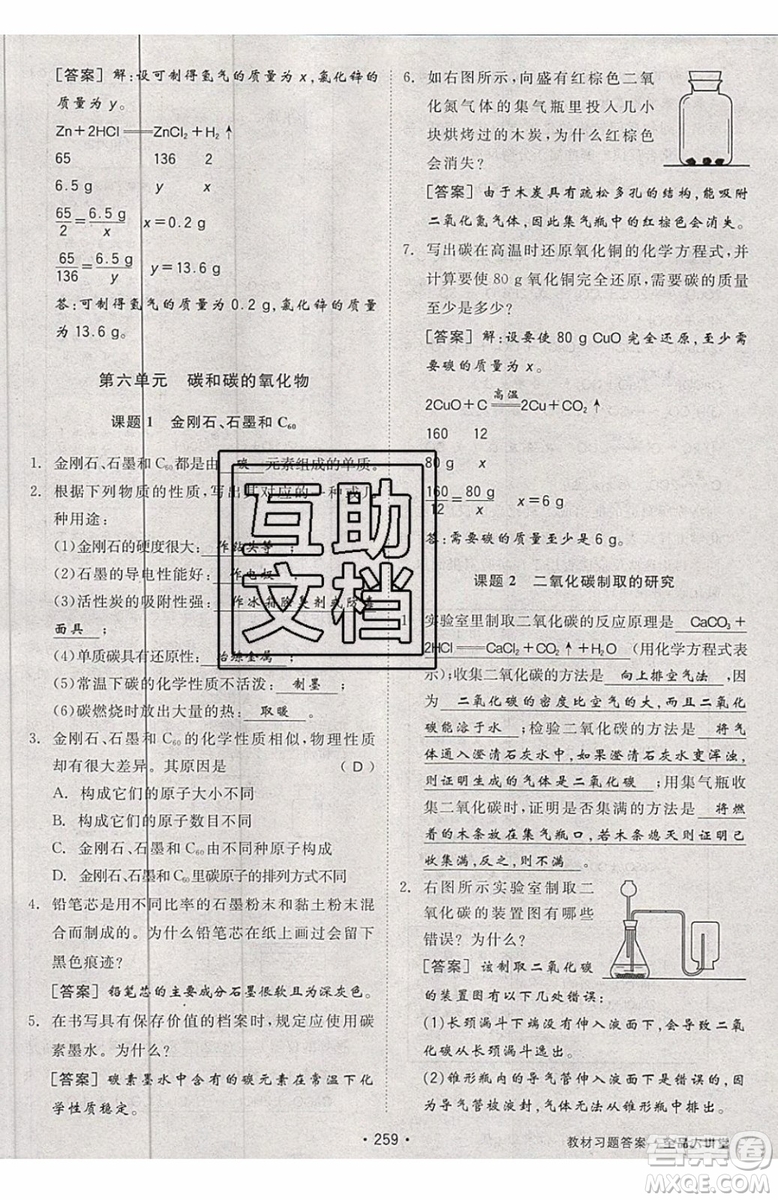 [答案] 解:设可制得氢气的质量为 x,氯化锌的
质量为 y。
Zn＋2HCl══ZnCl₂＋H₂↑
65 136 2
6.5 g y x
65/2＝6.5 g/x x＝0.2 g
65/136＝6.5 g/y y＝13.6 g
答:可制得氢气的质量为 0.2 g,氯化锌的质量
为 13.6 g。
第六单元 碳和碳的氧化物
课题 1 金刚石、石墨和 C₆₀
1. 金刚石、石墨和 C₆₀都是由 碳 元素组成的单质。
2. 根据下列物质的性质,写出其对应的一种或几
种用途:
(1)金刚石的硬度很大: 作钻头等 ;
(2)石墨的导电性能好: 作电极 ;
(3)活性炭的吸附性强: 作冰箱除臭剂或防毒
面具 ;
(4)单质碳具有还原性: 冶炼金属 ;
(5)常温下碳的化学性质不活泼: 制墨 ;
(6)碳燃烧时放出大量的热: 取暖 。
3. 金刚石、石墨和 C₆₀的化学性质相似,物理性质
却有很大差异。其原因是 ( D )
A. 构成它们的原子大小不同
B. 构成它们的原子数目不同
C. 金刚石、石墨和 C₆₀由不同种原子构成
D. 金刚石、石墨和 C₆₀里碳原子的排列方式不同
4. 铅笔芯是用不同比率的石墨粉末和黏土粉末混
合而制成的。为什么铅笔芯在纸上画过会出现
黑色痕迹?
[答案] 铅笔芯的主要成分石墨很软且为深灰色。
5. 在书写具有保存价值的档案时,规定应使用碳
素墨水。为什么?
[答案] 碳素墨水中含有的碳元素在常温下化
学性质稳定。
6. 如右图所示,向盛有红棕色二氧
化氮气体的集气瓶里投入几小
块烘烤过的木炭,为什么红棕色
会消失?
[答案] 由于木炭具有疏松多孔的结构,能吸附
二氧化氮气体,因此集气瓶中的红棕色会消失。
7. 写出碳在高温时还原氧化铜的化学方程式,并
计算要使 80 g 氧化铜完全还原,需要碳的质量
至少是多少?
[答案] 解:设要使 80 g CuO 完全还原,至少需
要碳的质量为 x。
高温
2CuO＋C══2Cu＋CO₂↑
160 12
80 g x
160/12＝80 g/x x＝6 g
答:需要碳的质量至少是 6 g。
课题 2 二氧化碳制取的研究
1. 实验室里制取二氧化碳的反应原理是 CaCO₃＋
2HCl══CaCl₂＋CO₂↑＋H₂O (用化学方程式表
示);收集二氧化碳的方法是 向上排空气法 ,
因为 二氧化碳的密度比空气的大,而且二氧化碳
能溶于水 ;检验二氧化碳的方法是 将气
体通入澄清石灰水中,如果澄清石灰水变浑浊,
则证明生成的气体是二氧化碳 ;用集气瓶收集
二氧化碳时,证明是否集满的方法是 将燃
着的木条放在集气瓶口,若木条熄灭则证明已
收集满,反之,则不满 。
2. 右图所示实验室制取二
氧化碳的装置图有哪些
错误?为什么?
[答案] 该制取二氧化
碳的装置存在以下几处错误:
(1)长颈漏斗下端没有伸入液面下,会导致二氧
化碳从长颈漏斗逸出。
(2)锥形瓶内的导气管伸入液面下是错误的,这样会
导气管被液封,无法使气体从锥形瓶中导出。
·259·
教材习题答案 全品大讲堂
互助
文档